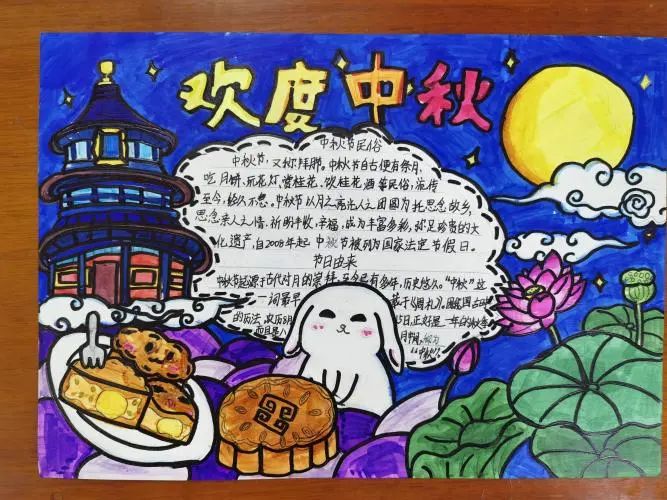 欢度中秋
中秋节民俗
中秋节,又称拜月节。中秋节自古便有祭月、
吃月饼、玩花灯、赏桂花、饮桂花酒等民俗,流传
至今,经久不息。中秋节以月之圆兆人之团圆,为托思念故乡,
思念亲人之情,祈盼丰收、幸福,成为丰富多彩、弥足珍贵的文
化遗产,自2008年起中秋节被列为国家法定节假日。
节日由来
中秋节起源于古代对月的崇拜,至今已有多年,历史悠久。"中秋"这
一词最早 于《周礼》,
的历法,农历8月 15日,正好是一年的秋季
而且是八 月中间,
"中秋"。